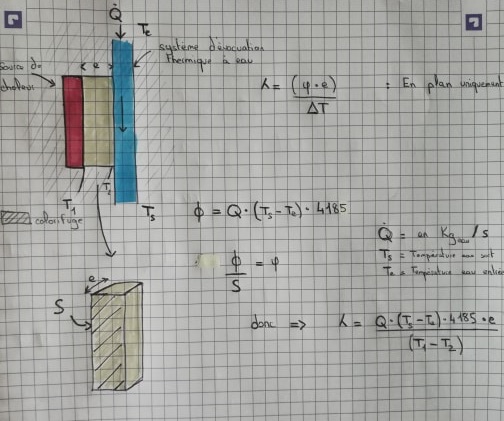 Q̇
Te
système d'évacuation
thermique à eau
source de
chaleur
e
λ = (φ·e) / ΔT : En plan uniquement
T1
T2
Ts
calorifuge
ϕ = Q·(Ts-Te)·4185
Q̇ = en Kg eau/s
Ts = Température eau sort
Te = Température eau entrée
ϕ/S = φ
e
S
donc => λ = Q·(Ts-Te)·4185·e / (T1-T2)